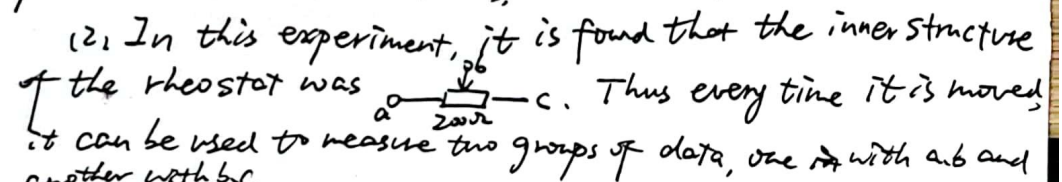 (2) In this experiment, it is found that the inner structure
of the rheostat was a b 200Ω c. Thus every time it is moved,
it can be used to measure two groups of data, one with a.b and
another with b.c